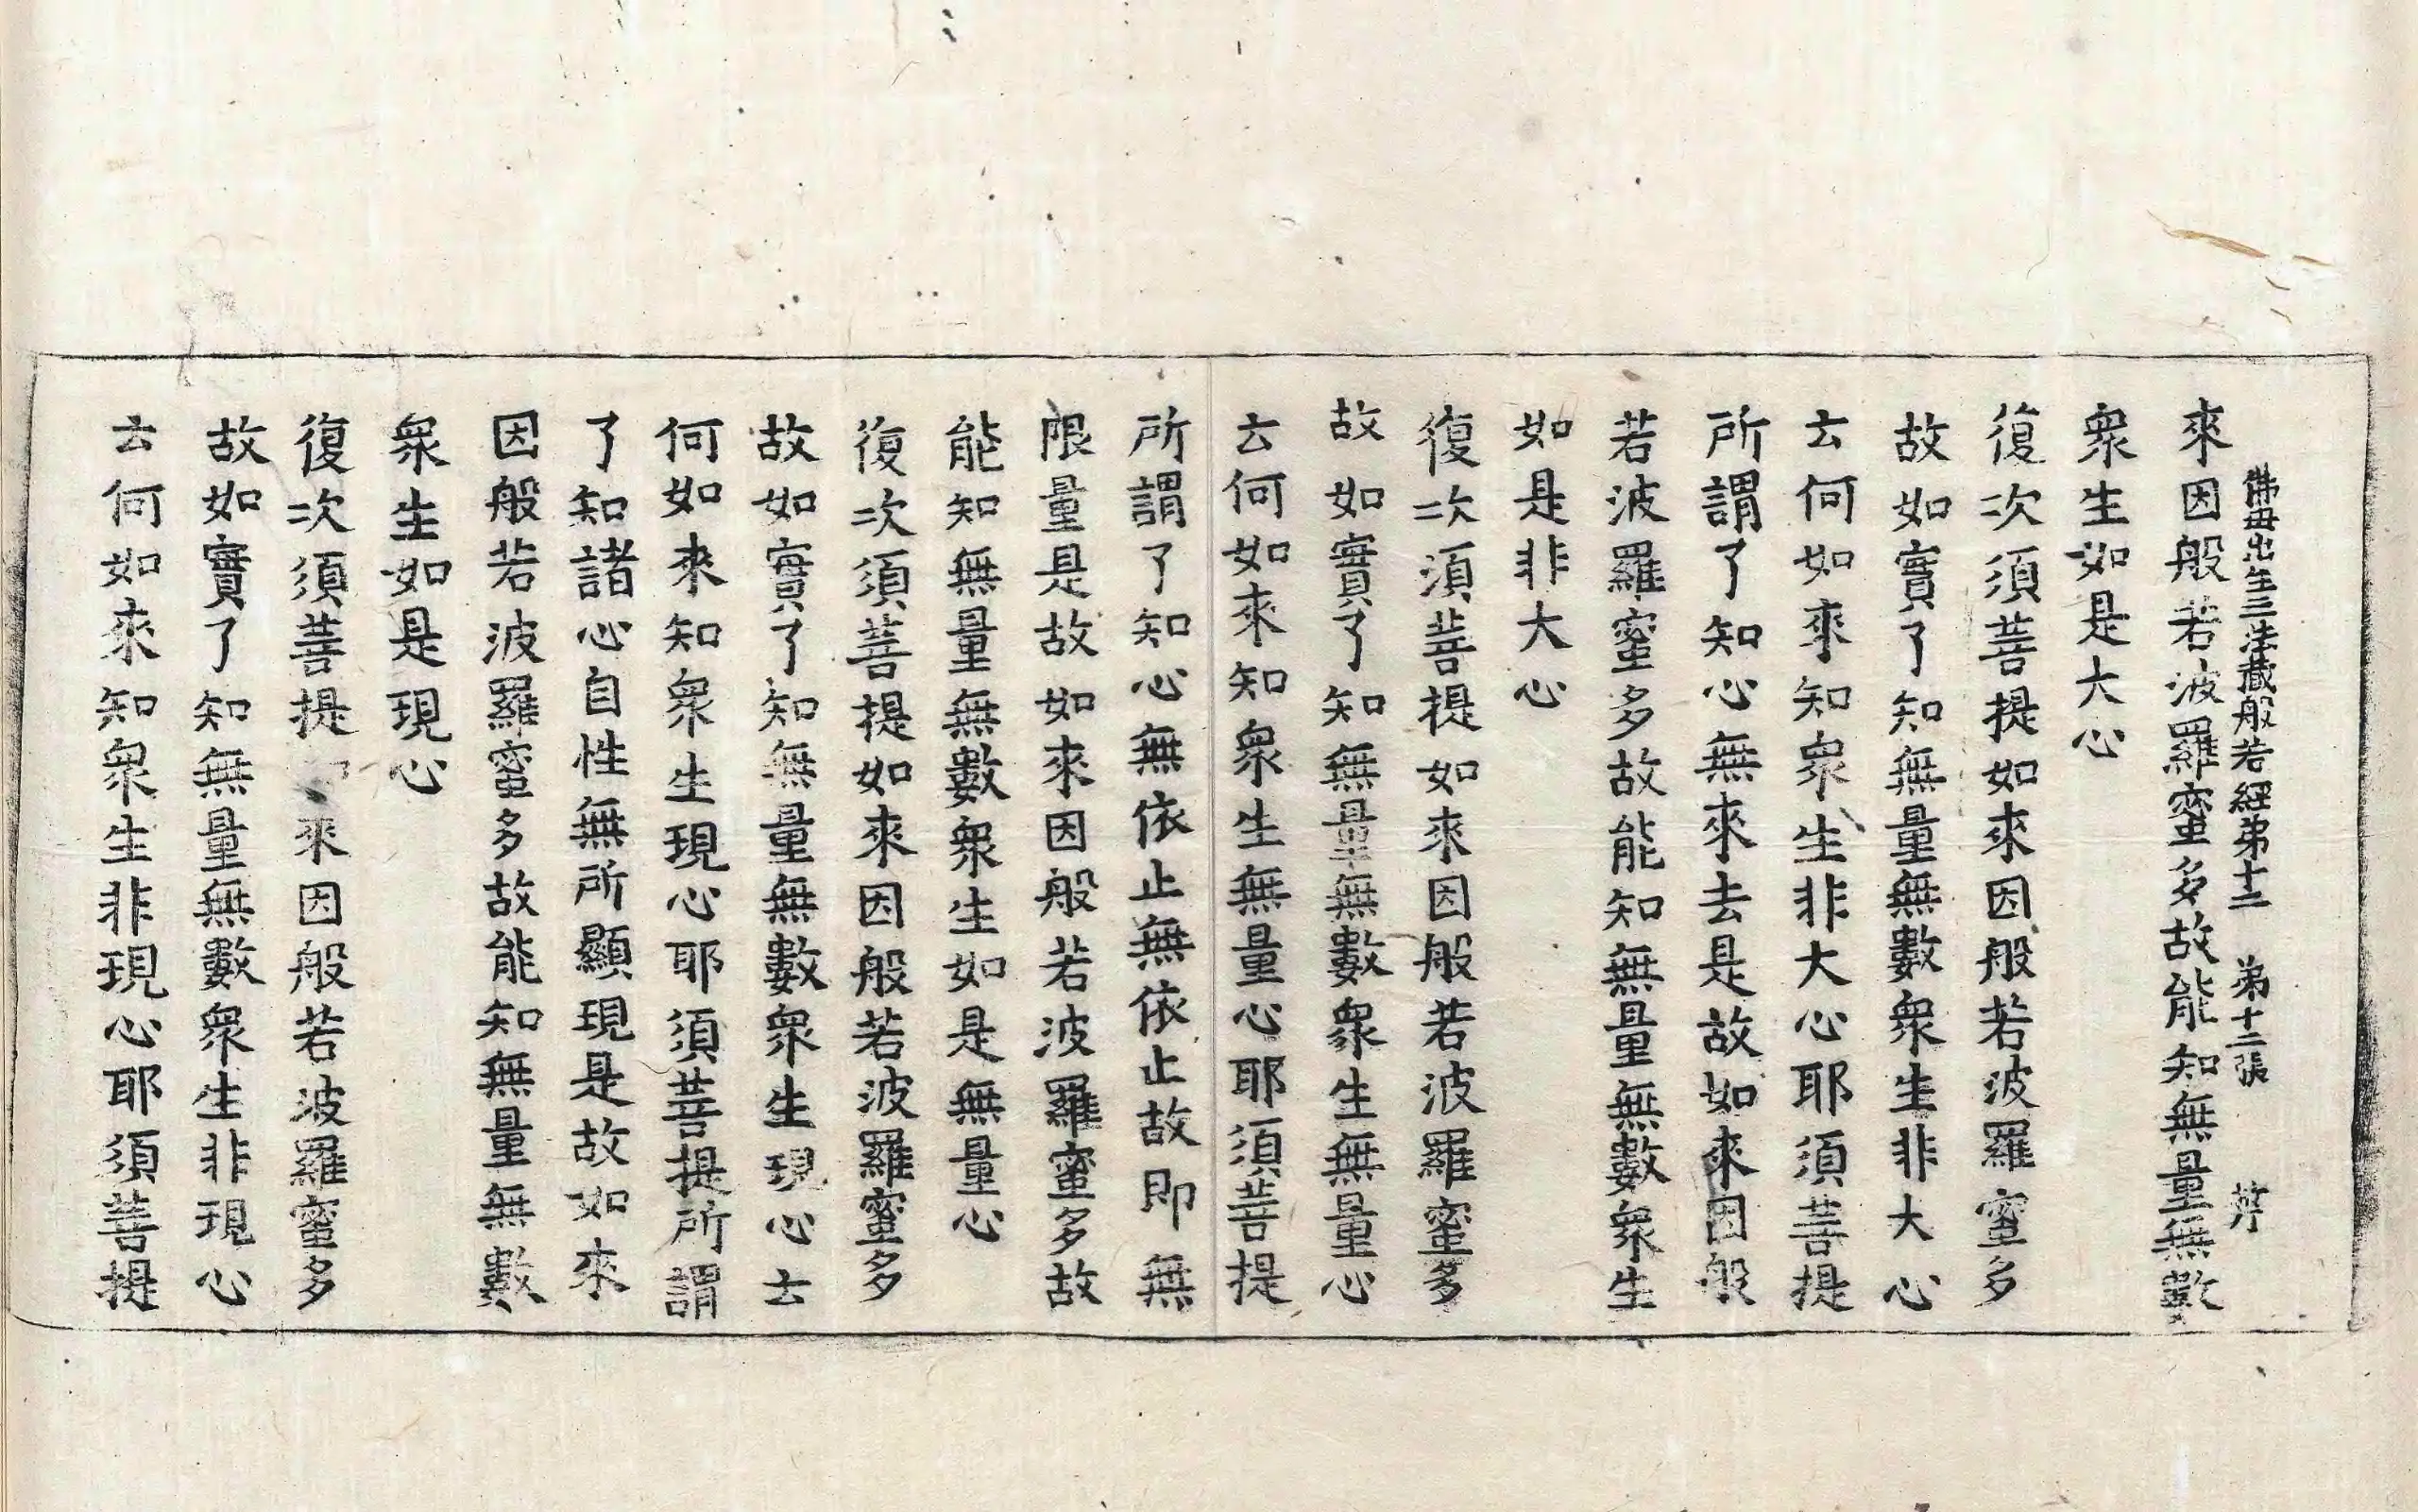 佛母出生三法藏般若經弟十二 弟十二張 芹
來因般若波羅蜜多故能知無量無數
衆生如是大心
復次須菩提如來因般若波羅蜜多
故如實了知無量無數衆生非大心
云何如來知衆生非大心耶須菩提
所謂了知心無來去是故如來因般
若波羅蜜多故能知無量無數衆生
如是非大心
復次須菩提如來因般若波羅蜜多
故如實了知無量無數衆生無量心
云何如來知衆生無量心耶須菩提
所謂了知心無依止無依止故即無
限量是故如來因般若波羅蜜多故
能知無量無數衆生如是無量心
復次須菩提如來因般若波羅蜜多
故如實了知無量無數衆生現心云
何如來知衆生現心耶須菩提所謂
了知諸心自性無所顯現是故如來
因般若波羅蜜多故能知無量無數
衆生如是現心
復次須菩提來因般若波羅蜜多
故如實了知無量無數衆生非現心
云何如來知衆生非現心耶須菩提